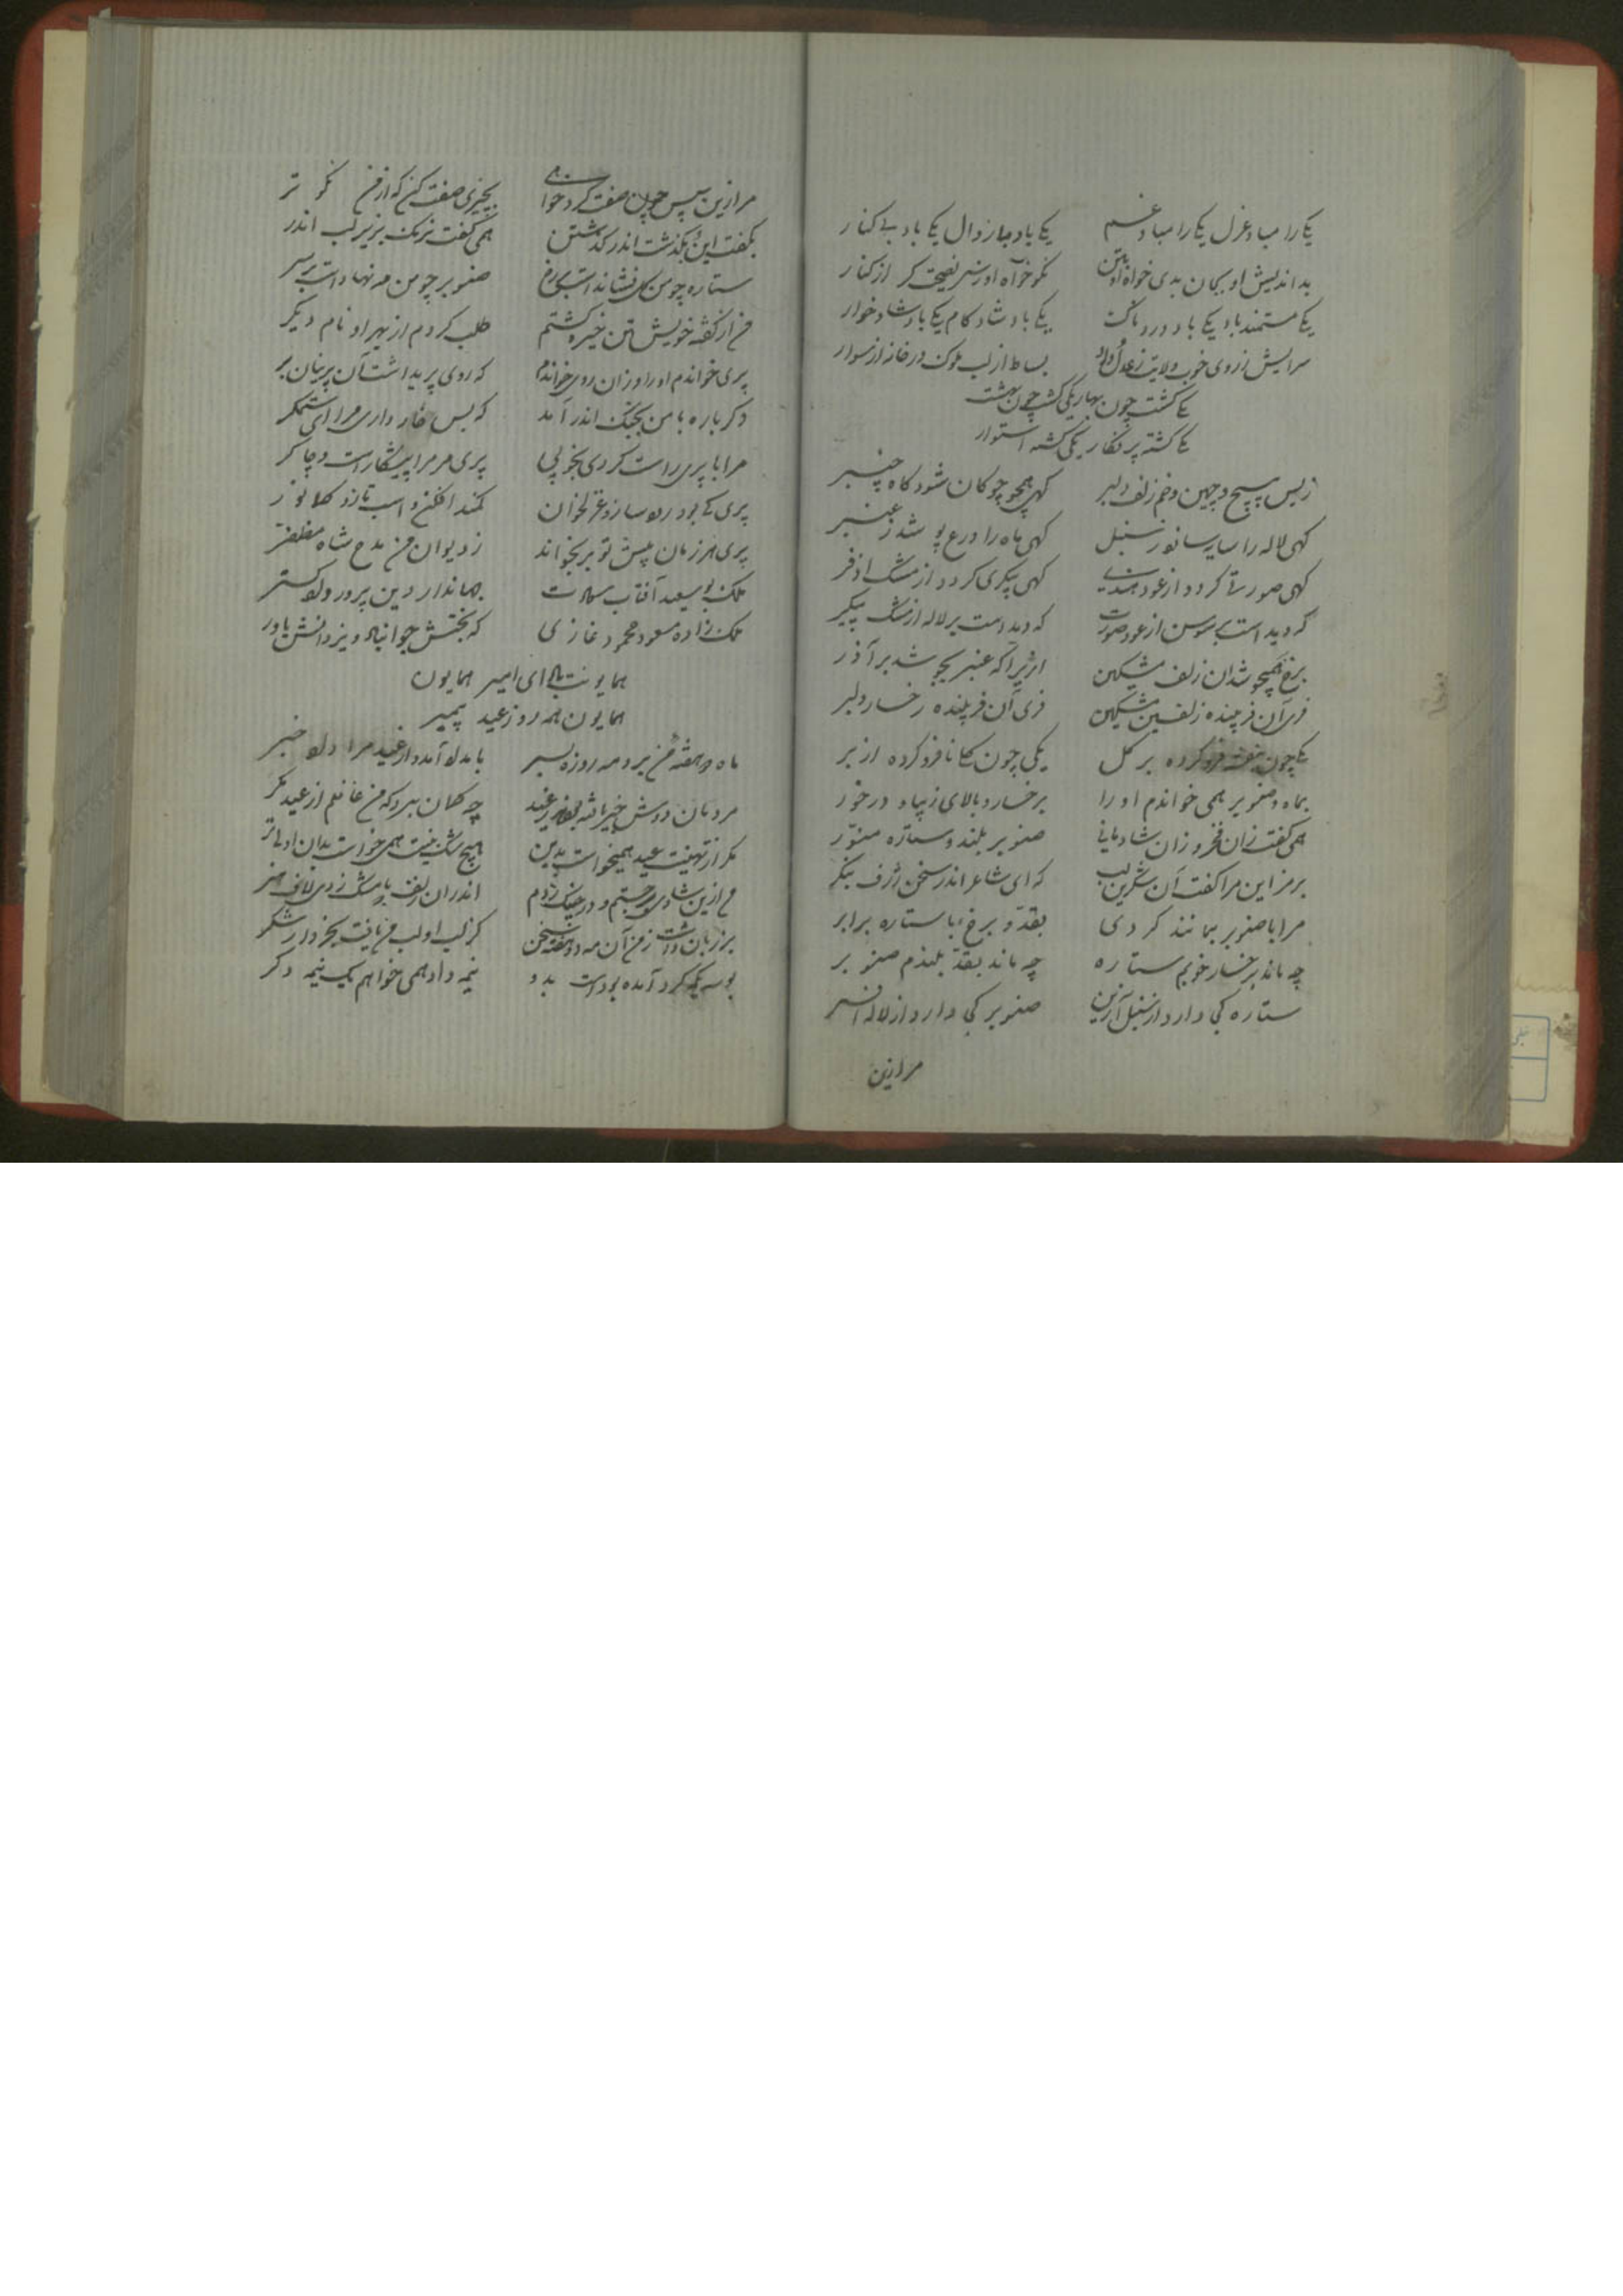 یکی را مباد عزل یکی را مباد غم یکی باد بی زوال یکی باد بی کنار
بداندیش او بجان بدی خواه او بتن نکوخواه او ز نصیحت گر از کنار
یکی مستمند باد یکی باد دردناک یکی باد شادکام یکی باد شادخوار
سرایش ز روی خوب ولایت ز عدل او بساط از لب ملوک در خانه از سوار
یکی گشت چون بهار یکی گشت چون بهشت
یکی گشته پر نگار یکی گشته استوار
ز بس پیچ و چین و خم زلف دلبر گهی همچو چوگان شود گاه چنبر
گهی لاله را سایه سازد ز سنبل گهی ماه را درع پوشد ز عنبر
گهی صورتی گردد از عود هندی گهی پیکری گردد از مشک اذفر
که دیدست بر سوسن از عود صورت که دیدست بر لاله از مشک پیکر
برخ همچو شد آن زلف مشکین ازیرا که عنبر بجوشد بر آذر
فری آن فریبنده زلفین مشکین فری آن فریبنده رخسار دلبر
یکی چون بنفشه فرو کرده بر گل یکی چون فرو کرده از بر
بماه و صنوبر همی خواندم او را برخسار و بالای زیبا و درخور
همی گفت زان فخر و زان شادمانی صنوبر بلند و ستاره منور
برمز این مرا گفت آن شکرین لب که ای شاعر اندر سخن ژرف بنگر
مرا با صنوبر بمانند کردی بقد و برخ با ستاره برابر
چه ماند برخسار خوبم ستاره چه ماند بقد بلندم صنوبر
ستاره کجا دارد از سنبل آذین صنوبر کجا دارد از لاله افسر
مرا زین
مرا زین سپس چون صفت کرد خواهی بچیزی صفت کن که از من نکوتر
بگفت این و بگذشت اندر گذشتن همی گفت نرمک بزیر لب اندر
ستاره چو من گل فشاندست بر رخ صنوبر چو من مه نهادست بر سر
من از گفته خویشتن خیره گشتم طلب کردم از بهر او نام دیگر
پری خواندم او را و زان روی خواندم که روی پری داشت آن پرنیان بر
دگر باره با من بجنگ اندر آمد که بس خوار داری مرا ای ستمگر
مرا با پری راست کردی بخوبی پری مر مرا پیشکارست و چاکر
پری کی بود رود ساز و غزلخوان کمند افکن و اسب تاز و کمان ور
پری هر زمان پیش تو برنخواند ز دیوان من مدح شاه مظفر
ملک بوسعید آفتاب سعادت جهاندار دین پرور و دادگستر
ملک زاده مسعود محمود غازی که بختش جوان باد و یزدانش یاور
همایونت باد ای امیر همایون
همایون همه روز عید پیمبر
ماه دو هفته من برد مه روزه بسر بامداد آمد و از عید مرا داد خبر
مردمان دوش خبر یافته بودند ز عید چه گمان برد که من غافلم از عید مگر
مگر از تهنیت عید همیخواست بدین هیچ شک نیست همی خواست بدان
من از این شادی برجستم و در چنگ زدم اندر آن زلف
بر زبان داشت ز من آن مه دو هفته سخن کز لب او لب من یافت بخروار شکر
بوسه یکماه گرد آمده بودست بدو نیمه داد همی خواهم یک نیمه دگر